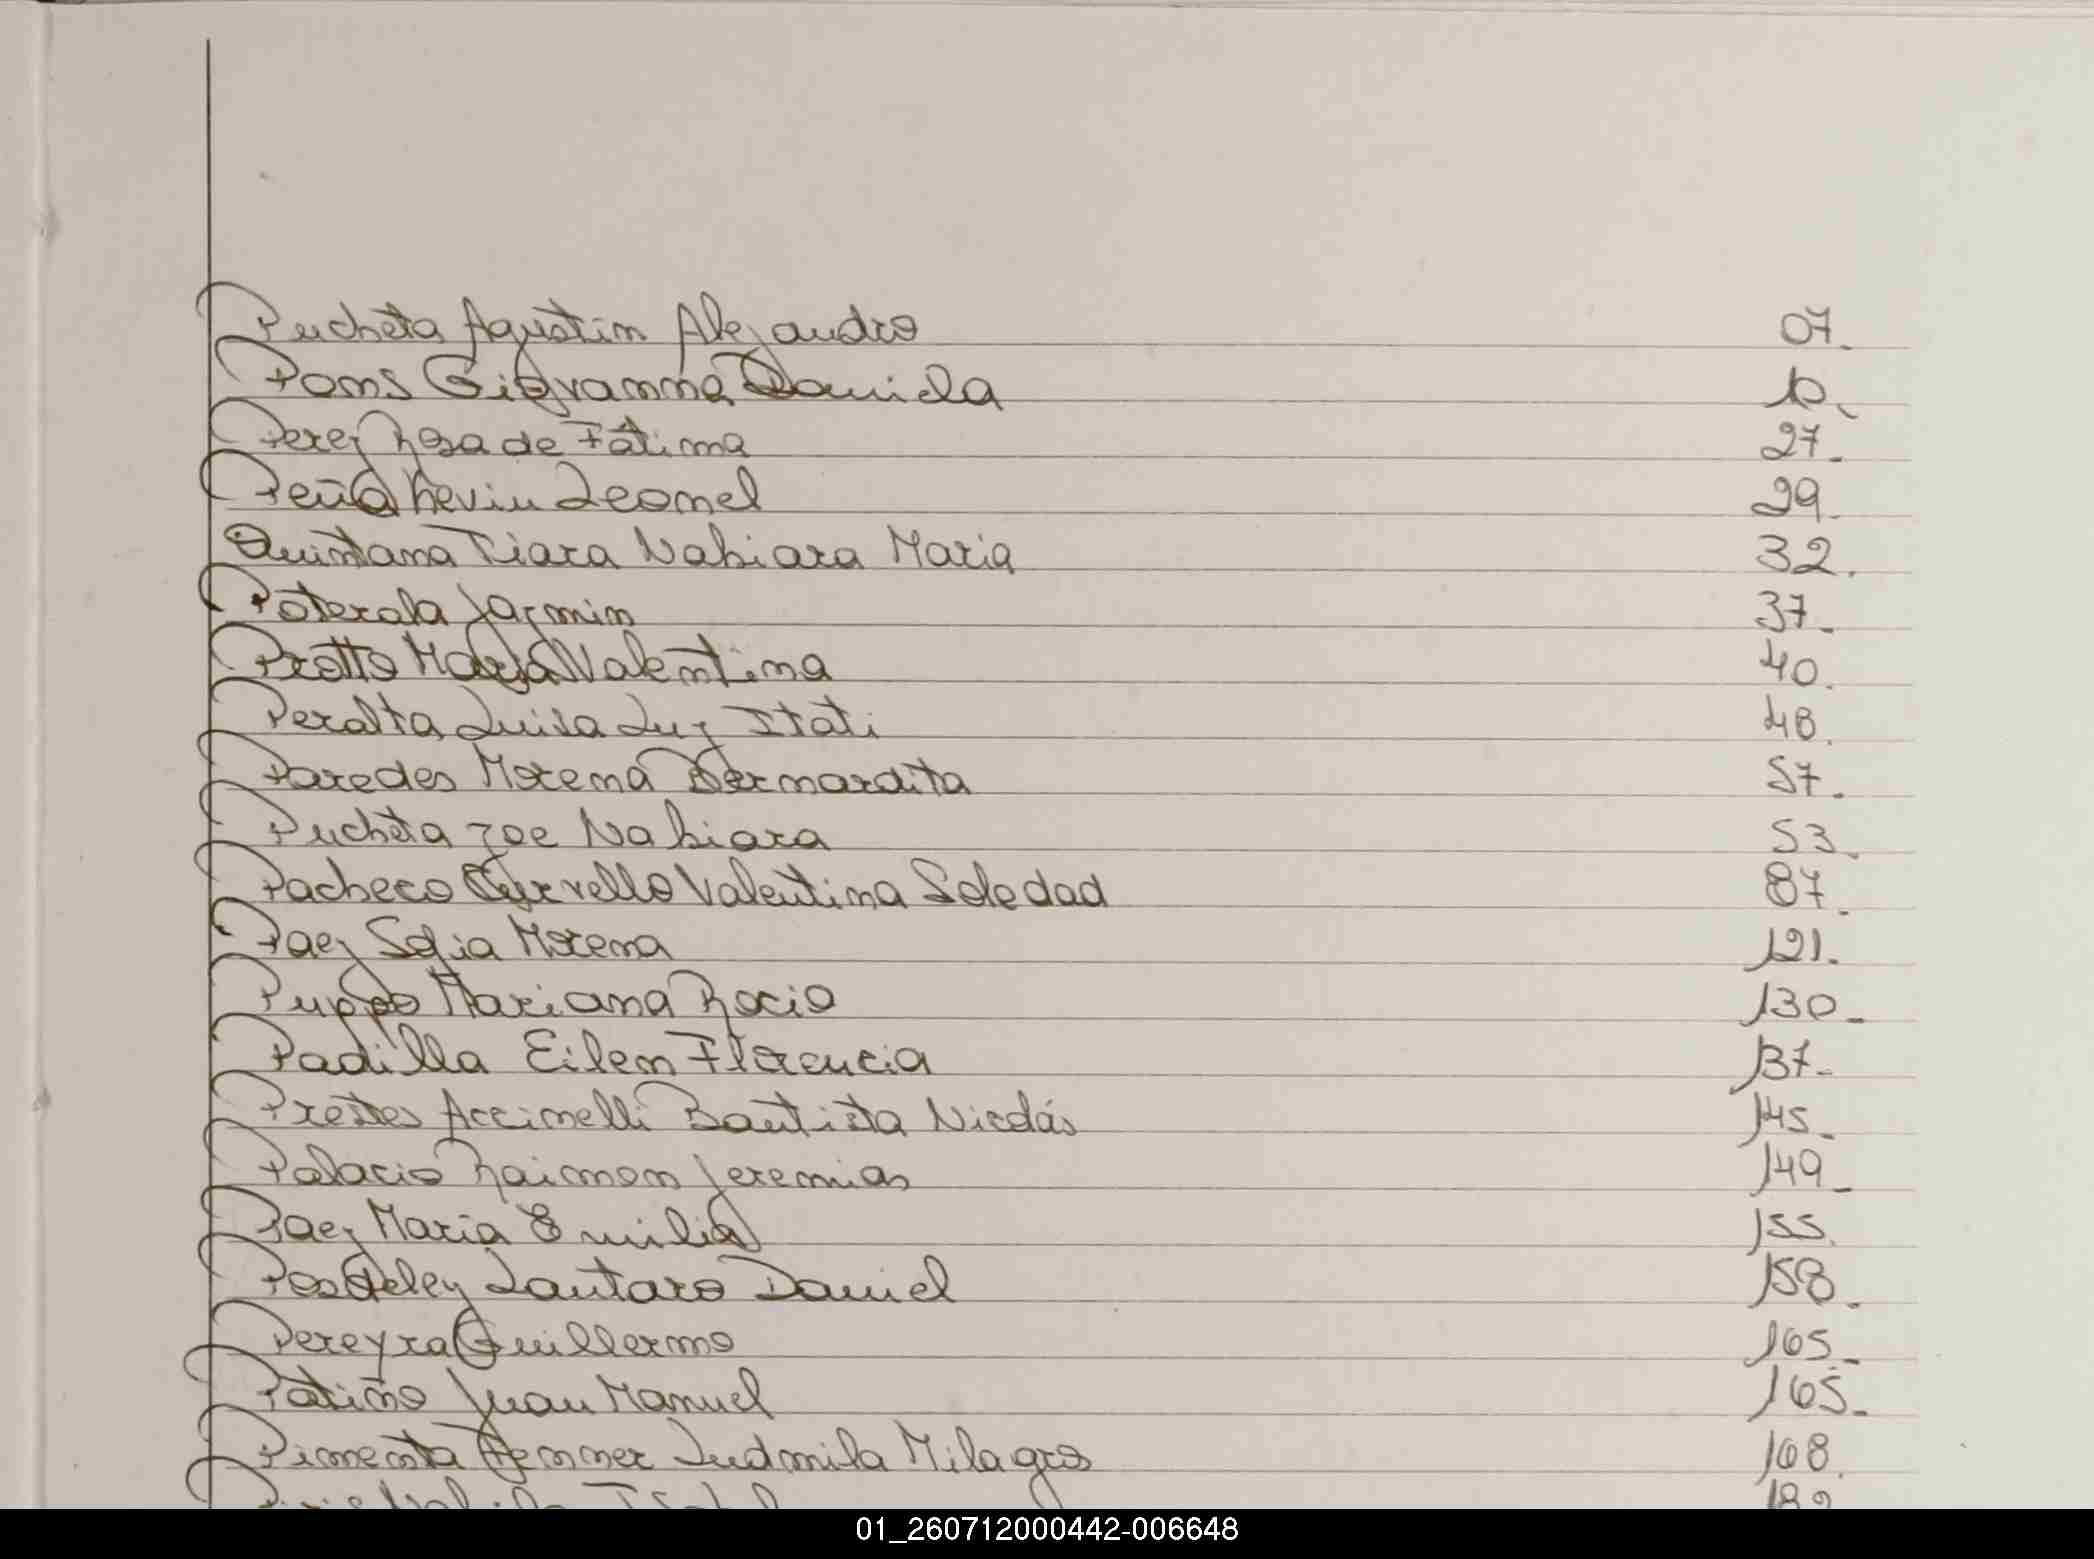 Pucheta Agustin Alejandro 07.
Poms Giovanna Daniela 10.
Perez Rosa de Fátima 27.
Peña Kevin Leonel 29.
Quintana Tiara Nahiara Maria 32.
Poterala Jazmin 37.
Protto Maria Valentina 40.
Peralta Luisa Luz Itati 48.
Paredes Morena Bernardita 57.
Pucheta Zoe Nahiara 53.
Pacheco Valentina Soledad 87.
Paez Sofia Morena 121.
Puppo Mariana Rocio 130.
Padilla Eilen Florencia 137.
Prestes Accinelli Bautista Nicolás 145.
Palacio Raimon Jeremias 149.
Paez Maria Emilia 155.
Lautaro Daniel 158.
Pereyra Guillermo 165.
Patiño Juan Manuel 165.
Pimenta Ludmila Milagro 168.
01_260712000442-006648